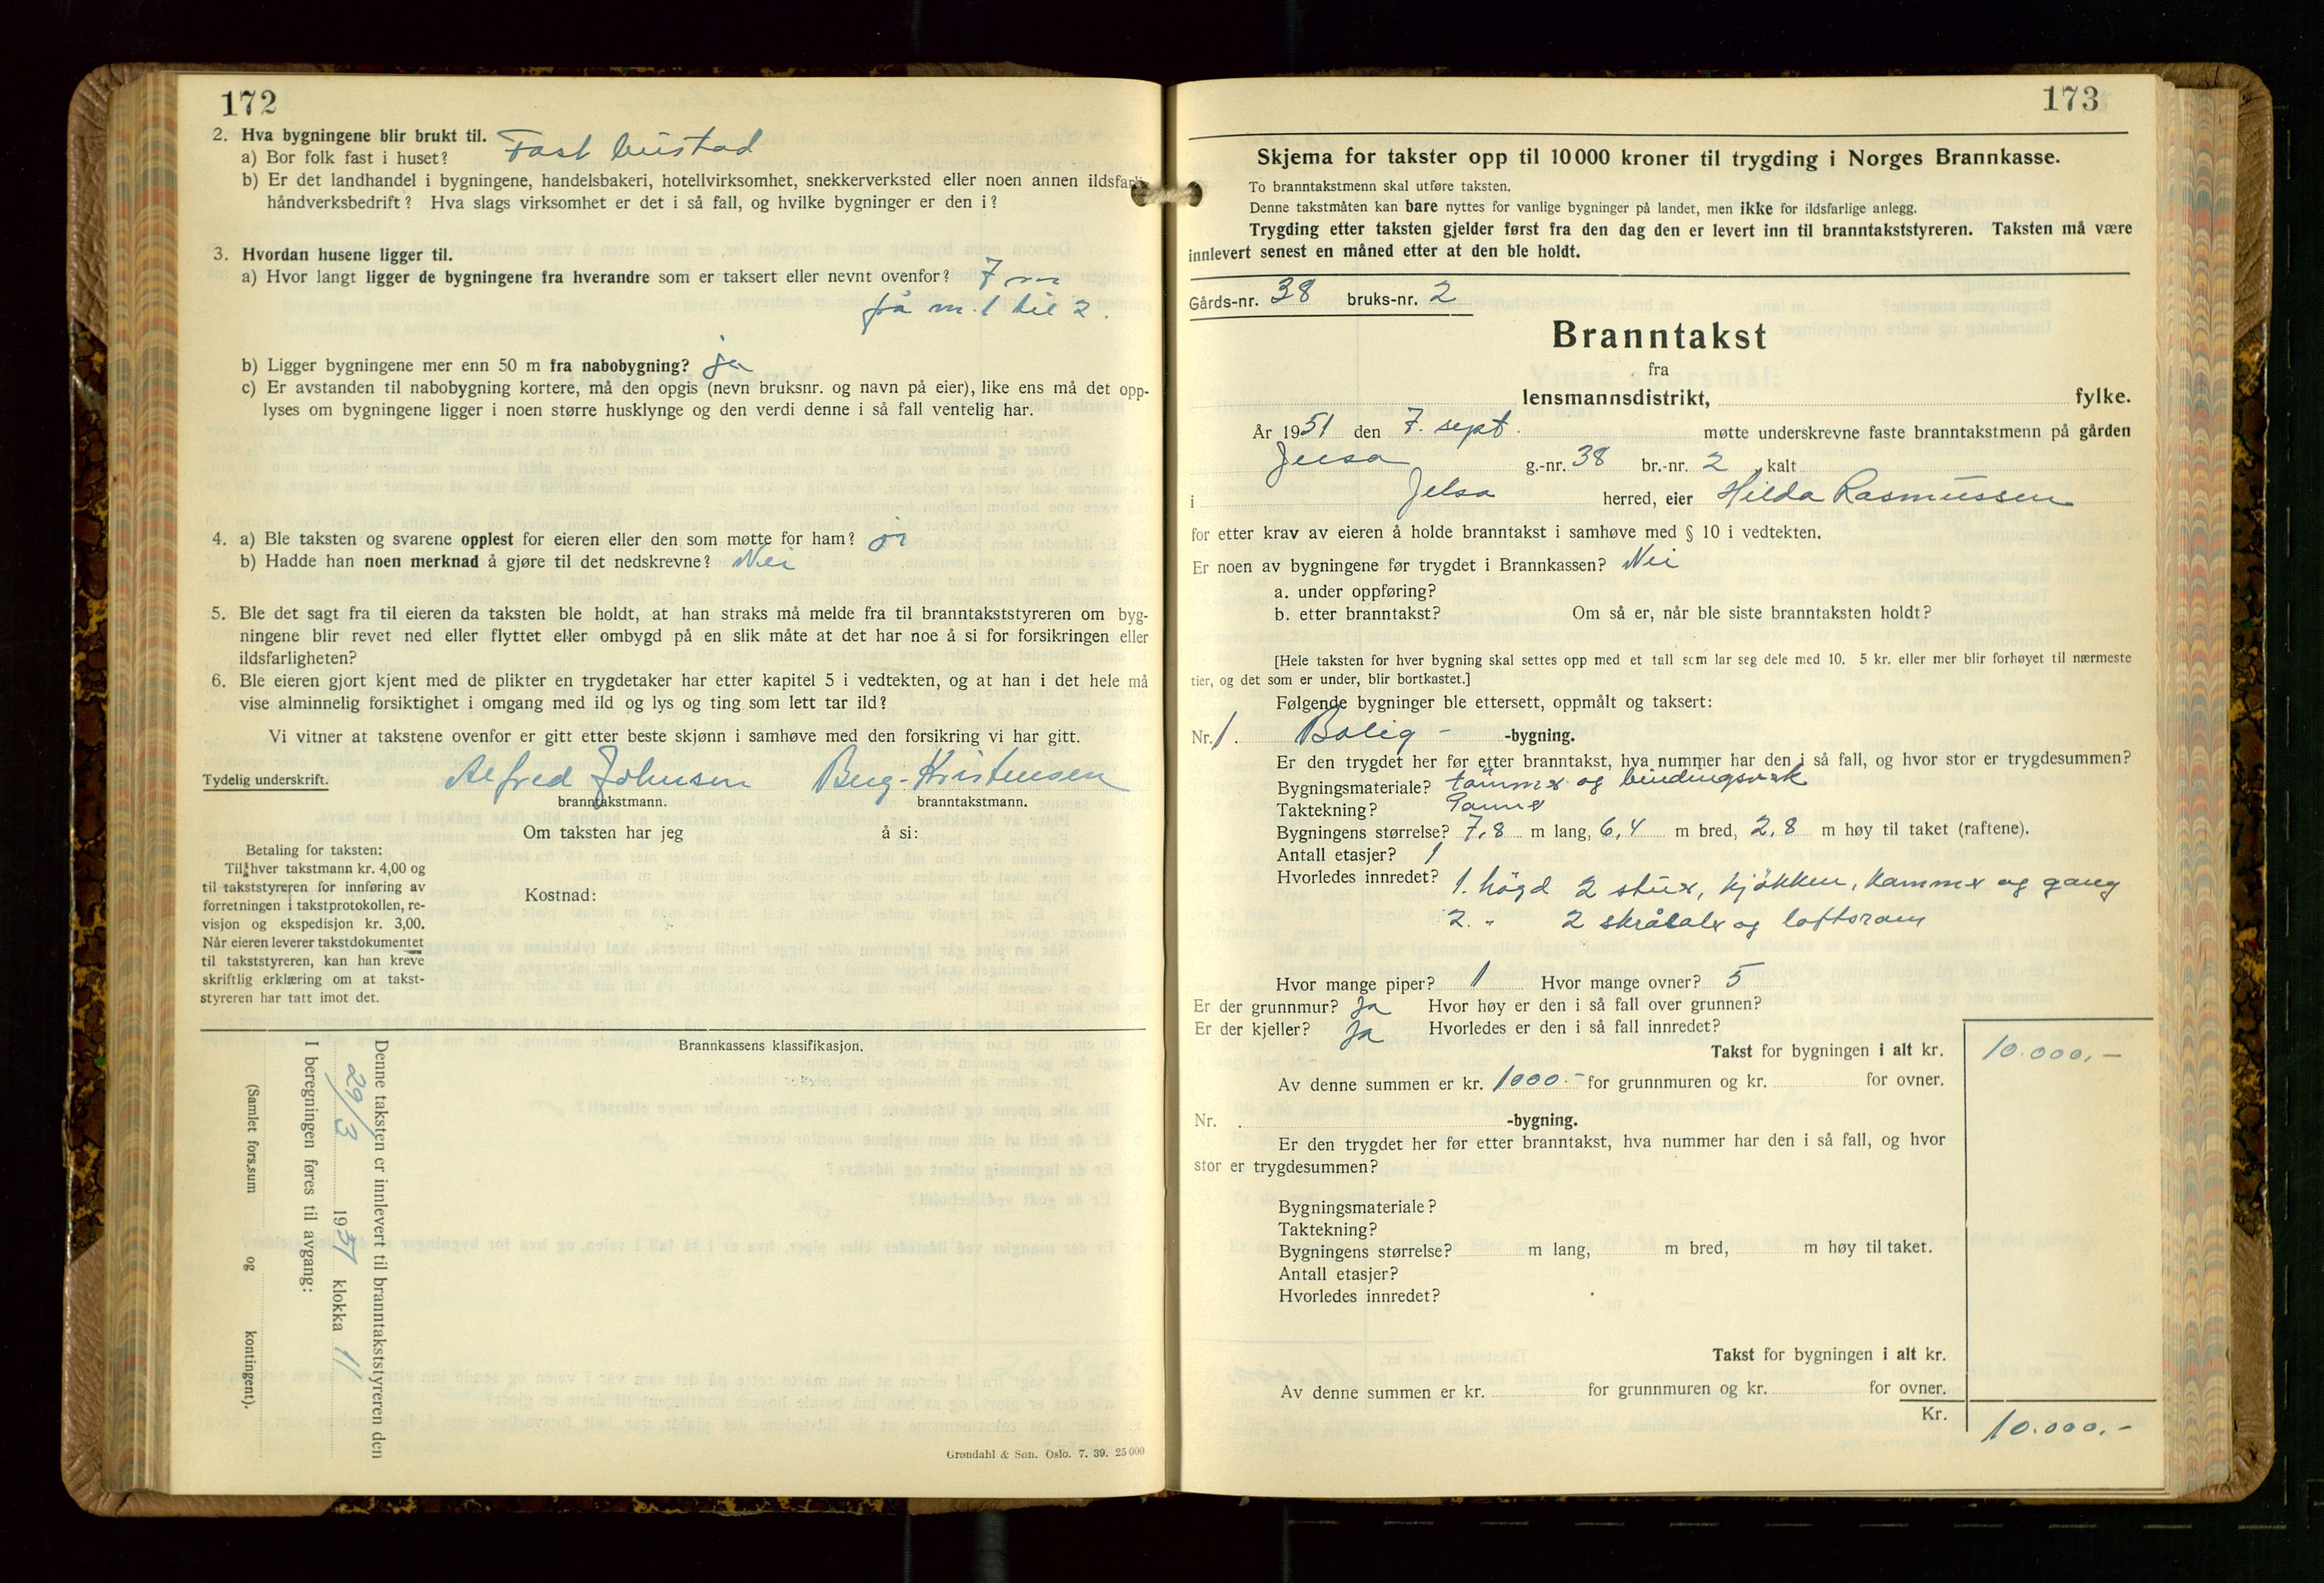 172
2. Hva bygningene blir brukt til.
a) Bor folk fast i huset? Fast bustad
b) Er det landhandel i bygningene, handelsbakeri, hotellvirksomhet, snekkerverksted eller noen annen ildsfarlig
håndverksbedrift? Hva slags virksomhet er det i så fall, og hvilke bygninger er den i?
3. Hvordan husene ligger til.
a) Hvor langt ligger de bygningene fra hverandre som er taksert eller nevnt ovenfor? 7 m
frå nr. 1 til 2.
b) Ligger bygningene mer enn 50 m fra nabobygning? ja
c) Er avstanden til nabobygning kortere, må den opgis (nevn bruksnr. og navn på eier), like ens må det opp-
lyses om bygningene ligger i noen større husklynge og den verdi denne i så fall ventelig har.
4. a) Ble taksten og svarene opplest for eieren eller den som møtte for ham? ja
b) Hadde han noen merknad å gjøre til det nedskrevne? Nei
5. Ble det sagt fra til eieren da taksten ble holdt, at han straks må melde fra til branntakststyreren om byg-
ningene blir revet ned eller flyttet eller ombygd på en slik måte at det har noe å si for forsikringen eller
ildsfarligheten?
6. Ble eieren gjort kjent med de plikter en trygdetaker har etter kapitel 5 i vedtekten, og at han i det hele må
vise alminnelig forsiktighet i omgang med ild og lys og ting som lett tar ild?
Vi vitner at takstene ovenfor er gitt etter beste skjønn i samhøve med den forsikring vi har gitt.
Tydelig underskrift. Alfred Johnsen Berg-Kristensen
branntakstmann. branntakstmann.
Om taksten har jeg å si:
Betaling for taksten:
Til hver takstmann kr. 4,00 og
til takststyreren for innføring av
forretningen i takstprotokollen, re-
visjon og ekspedisjon kr. 3,00.
Når eieren leverer takstdokumentet
til takststyreren, kan han kreve
skriftlig erklæring om at takst-
styreren har tatt imot det.
Kostnad:
Brannkassens klassifikasjon.
Denne taksten er innlevert til branntakststyreren den
29/3 1951 klokka 11
I beregningen føres til avgang:
(Samlet fors.sum og kontingent).
Grøndahl & Søn. Oslo. 7. 39. 25 000
173
Skjema for takster opp til 10 000 kroner til trygding i Norges Brannkasse.
To branntakstmenn skal utføre taksten.
Denne takstmåten kan bare nyttes for vanlige bygninger på landet, men ikke for ildsfarlige anlegg.
Trygding etter taksten gjelder først fra den dag den er levert inn til branntakststyreren. Taksten må være
innlevert senest en måned etter at den ble holdt.
Gårds-nr. 38 bruks-nr. 2
Branntakst
fra
lensmannsdistrikt, fylke.
År 1951 den 7. sept. møtte underskrevne faste branntakstmenn på gården
Jelsa g.-nr. 38 br.-nr. 2 kalt
i Jelsa herred, eier Hilda Rasmussen
for etter krav av eieren å holde branntakst i samhøve med § 10 i vedtekten.
Er noen av bygningene før trygdet i Brannkassen? Nei
a. under oppføring?
b. etter branntakst? Om så er, når ble siste branntaksten holdt?
[Hele taksten for hver bygning skal settes opp med et tall som lar seg dele med 10. 5 kr. eller mer blir forhøyet til nærmeste
tier, og det som er under, blir bortkastet.]
Følgende bygninger ble ettersett, oppmålt og taksert:
Nr. 1. Bolig - -bygning.
Er den trygdet her før etter branntakst, hva nummer har den i så fall, og hvor stor er trygdesummen?
Bygningsmateriale? tømmer og bindingsverk
Taktekning? Panner
Bygningens størrelse? 7,8 m lang, 6,4 m bred, 2,8 m høy til taket (raftene).
Antall etasjer? 1
Hvorledes innredet? 1. høgd 2 stuer, kjøkken, kammer og gang
2. " 2 skråtaler og loftsrom
Hvor mange piper? 1 Hvor mange ovner? 5
Er der grunnmur? Ja Hvor høy er den i så fall over grunnen?
Er der kjeller? Ja Hvorledes er den i så fall innredet?
Takst for bygningen i alt kr. 10.000,-
Av denne summen er kr. 1000.- for grunnmuren og kr. for ovner.
Nr. . -bygning.
Er den trygdet her før etter branntakst, hva nummer har den i så fall, og hvor
stor er trygdesummen?
Bygningsmateriale?
Taktekning?
Bygningens størrelse? m lang, m bred, m høy til taket.
Antall etasjer?
Hvorledes innredet?
Takst for bygningen i alt kr.
Av denne summen er kr. for grunnmuren og kr. for ovner.
Kr. 10.000.-